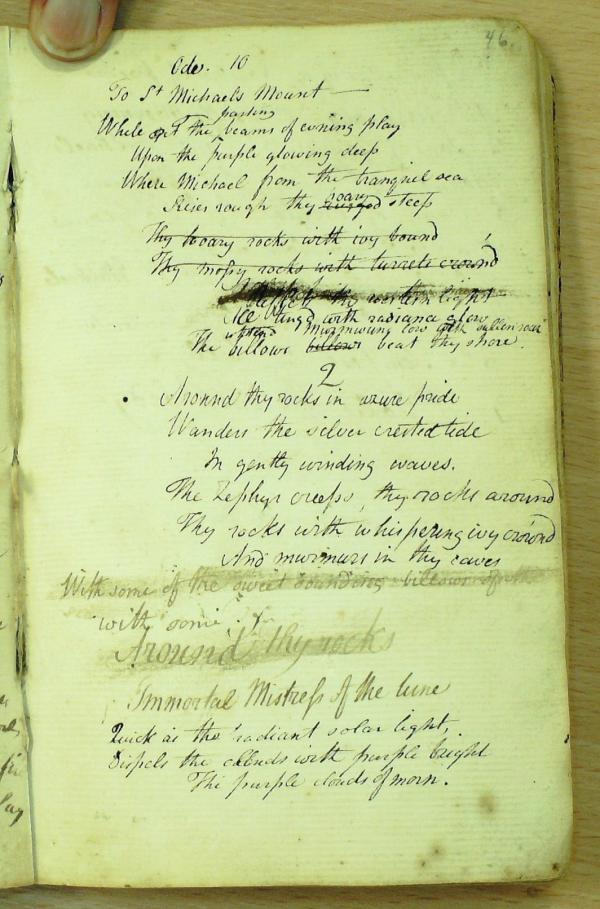 46.
Ode. 10
To St Michaels Mount —
parting
While oft the beams of evening play
Upon the purple glowing deep
Where Michael from the tranquil sea
hoary
Rises rough thy rugged steep
Thy hoary rocks with ivy bound
Thy mossy rocks with turrets crownd
the western light
All tingd with radiance glow
Murmuring low with sullen roar
The billows billows beat thy shore.
2
Around thy rocks in azure pride
Wanders the silver crested tide
In gently winding waves.
The Zephyr creeps thy rocks around
Thy rocks with whispering ivy crownd
And murmurs in thy caves
With some of the sweet sounding billows of the
with some
Around thy rocks
Immortal Mistress of the lune
Quick as the radiant solar light,
Dispels the clouds with purple bright
The purple clouds of morn.